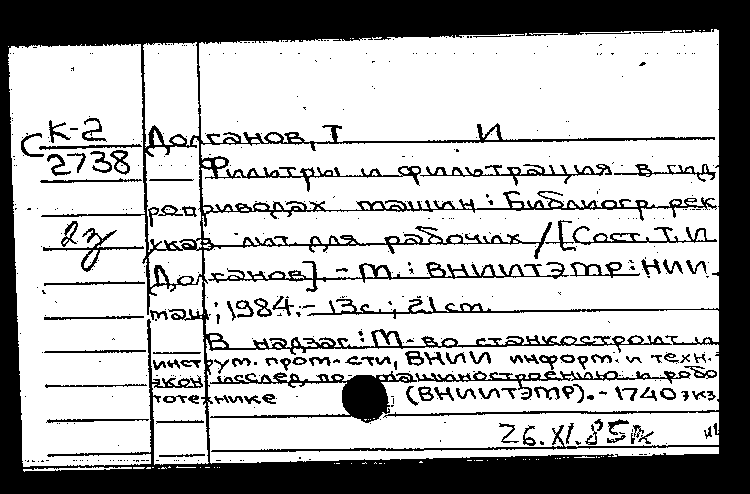 С К-2 Долганов, Т И
2738 Фильтры и фильтрация в гид-
роприводах машин : Библиогр. рек.
2з указ. лит. для рабочих / [Сост. Т. И.
Долганов]. - М. : ВНИИТЭМР : НИИ
маш, 1984. - 13с. ; 21 см.
В надзаг. : М-во станкостроит. и
инструм. пром-сти, ВНИИ информ. и техн.-
экон. исслед. по машиностроению и робо
тотехнике (ВНИИТЭМР). - 1740 экз.
26.XI.85